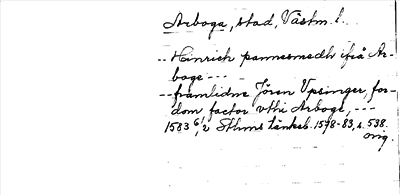 Arboga, stad, Västm. l.
-- Hinrich pannesmedh ifrå Ar-
boge ---
-- framlidne Jören Vpsinger, for-
dom factor vthi Arboge, ---
1583 6/2 Sthms tänkeb. 1578-83, s. 538.
orig.